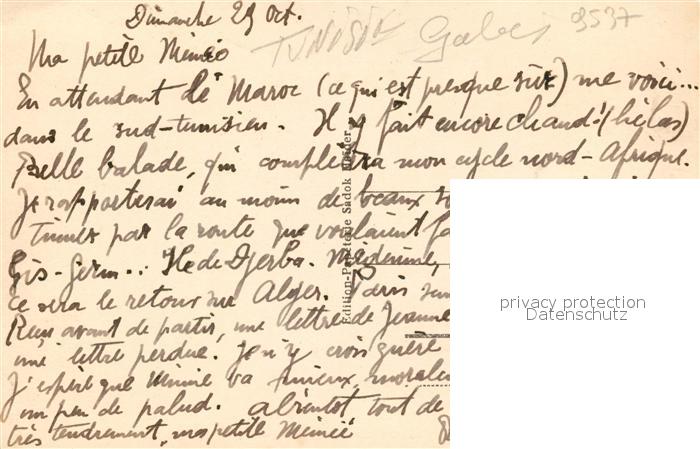 Dimanche 29 Oct.
TUNISIE Gabes 9537
Ma petite Mimie
En attendant le Maroc (ce qui est presque sûr) me voici...
dans le sud-tunisien. Il y fait encore chaud! (hélas)
Belle balade, qui complètera mon cycle nord-Afrique.
Je rapporterai au moins de beaux
Tunis par la route que voulaient
Gis-Germ.. Ile de Djerba. Médenine,
ce sera le retour sur Alger. Paris
Reçu avant de partir, une lettre de Jeanne
une lettre perdue. Je n'y crois guère
J'espère que Mimie va mieux, morale
un peu de palud. A bientôt tout de
très tendrement, ma petite Mimie
Edition-Papeterie Sadok
privacy protection
Datenschutz